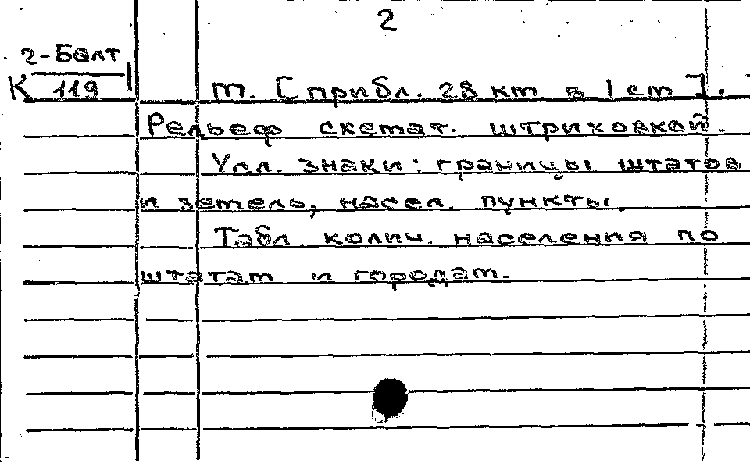 2
2-Балт
К 119
m. [прибл. 28 км в 1 см].
Рельеф схемат. штриховкой.
Усл. знаки: границы штатов
и земель, насел. пункты.
Табл. колич. населения по
штатам и городам.